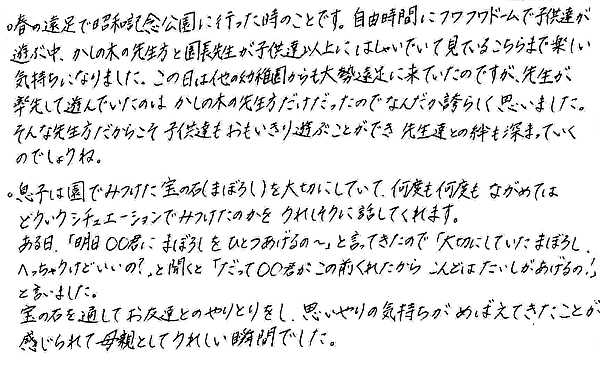 。春の遠足で昭和記念公園に行った時のことです。自由時間にフワフワドームで子供達が
遊ぶ中、かしの木の先生方と園長先生が子供達以上にはしゃいでいて見ているこちらまで楽しい
気持ちになりました。この日は他の幼稚園からも大勢遠足に来ていたのですが、先生が
率先して遊んでいたのは かしの木の先生方だけだったのでなんだか誇らしく思いました。
そんな先生方だからこそ 子供達もおもいきり遊ぶことができ 先生達との絆も深まっていく
のでしょうね。
。息子は園でみつけた宝の石(まぼろし)を大切にしていて、何度も何度も ながめては
どういうシチュエーションでみつけたのかを うれしそうに話してくれます。
ある日、「明日〇〇君に まぼろしを ひとつあげるの〜」と言ってきたので「大切にしていた まぼろし
へっちゃうけどいいの?」と聞くと「だって〇〇君が この前くれたから こんどは たいしがあげるの!」
と言いました。
宝の石を通して お友達とのやりとりをし、思いやりの気持ちが めばえてきたことが
感じられて 母親として うれしい瞬間でした。